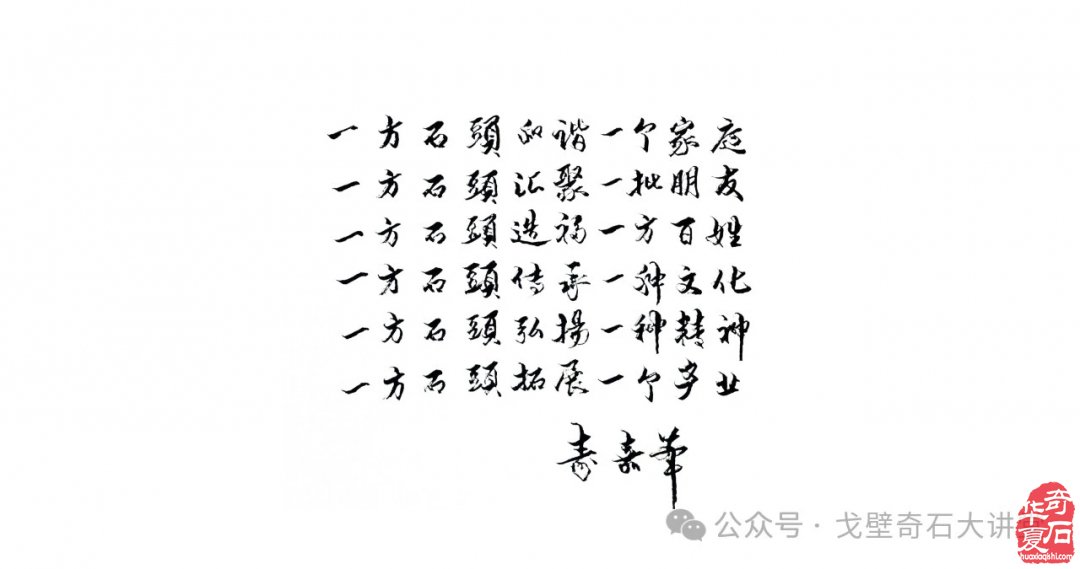 一方石頭和谐一个家庭
一方石頭汇聚一批朋友
一方石頭造福一方百姓
一方石頭传承一种文化
一方石頭弘揚一种精神
一方石頭拓展一个产业
寿嘉華
公众号·戈壁奇石大讲
华夏奇石
huaxiaqishi.com